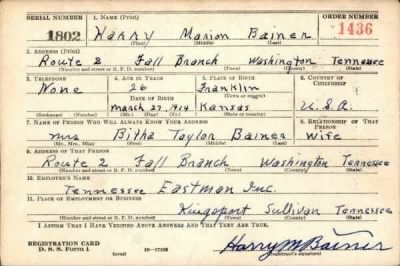 SERIAL NUMBER 1. NAME (Print) ORDER NUMBER
1802 Harry Marion Bainer 1436
(First) (Middle) (Last)
2. ADDRESS (Print)
Route 2 Fall Branch Washington Tennessee
(Number and street or R. F. D. number) (Town) (County) (State)
3. TELEPHONE 4. AGE IN YEARS 5. PLACE OF BIRTH 6. COUNTRY OF CITIZENSHIP
None 26 Franklin
DATE OF BIRTH (Town or county)
March 27, 1914 Kansas U.S.A.
(Exchange) (Number) (Mo.) (Day) (Yr.) (State or country)
7. NAME OF PERSON WHO WILL ALWAYS KNOW YOUR ADDRESS 8. RELATIONSHIP OF THAT PERSON
Mrs Bitha Taylor Bainer Wife
(Mr., Mrs., Miss) (First) (Middle) (Last)
9. ADDRESS OF THAT PERSON
Route 2 Fall Branch Washington Tennessee
(Number and street or R. F. D. number) (Town) (County) (State)
10. EMPLOYER'S NAME
Tennessee Eastman Inc.
11. PLACE OF EMPLOYMENT OR BUSINESS
Kingsport Sullivan Tennessee
(Number and street or R. F. D. number) (Town) (County) (State)
I AFFIRM THAT I HAVE VERIFIED ABOVE ANSWERS AND THAT THEY ARE TRUE.
REGISTRATION CARD
D. S. S. FORM 1 (over) Harry M Bainer
(Registrant's signature)